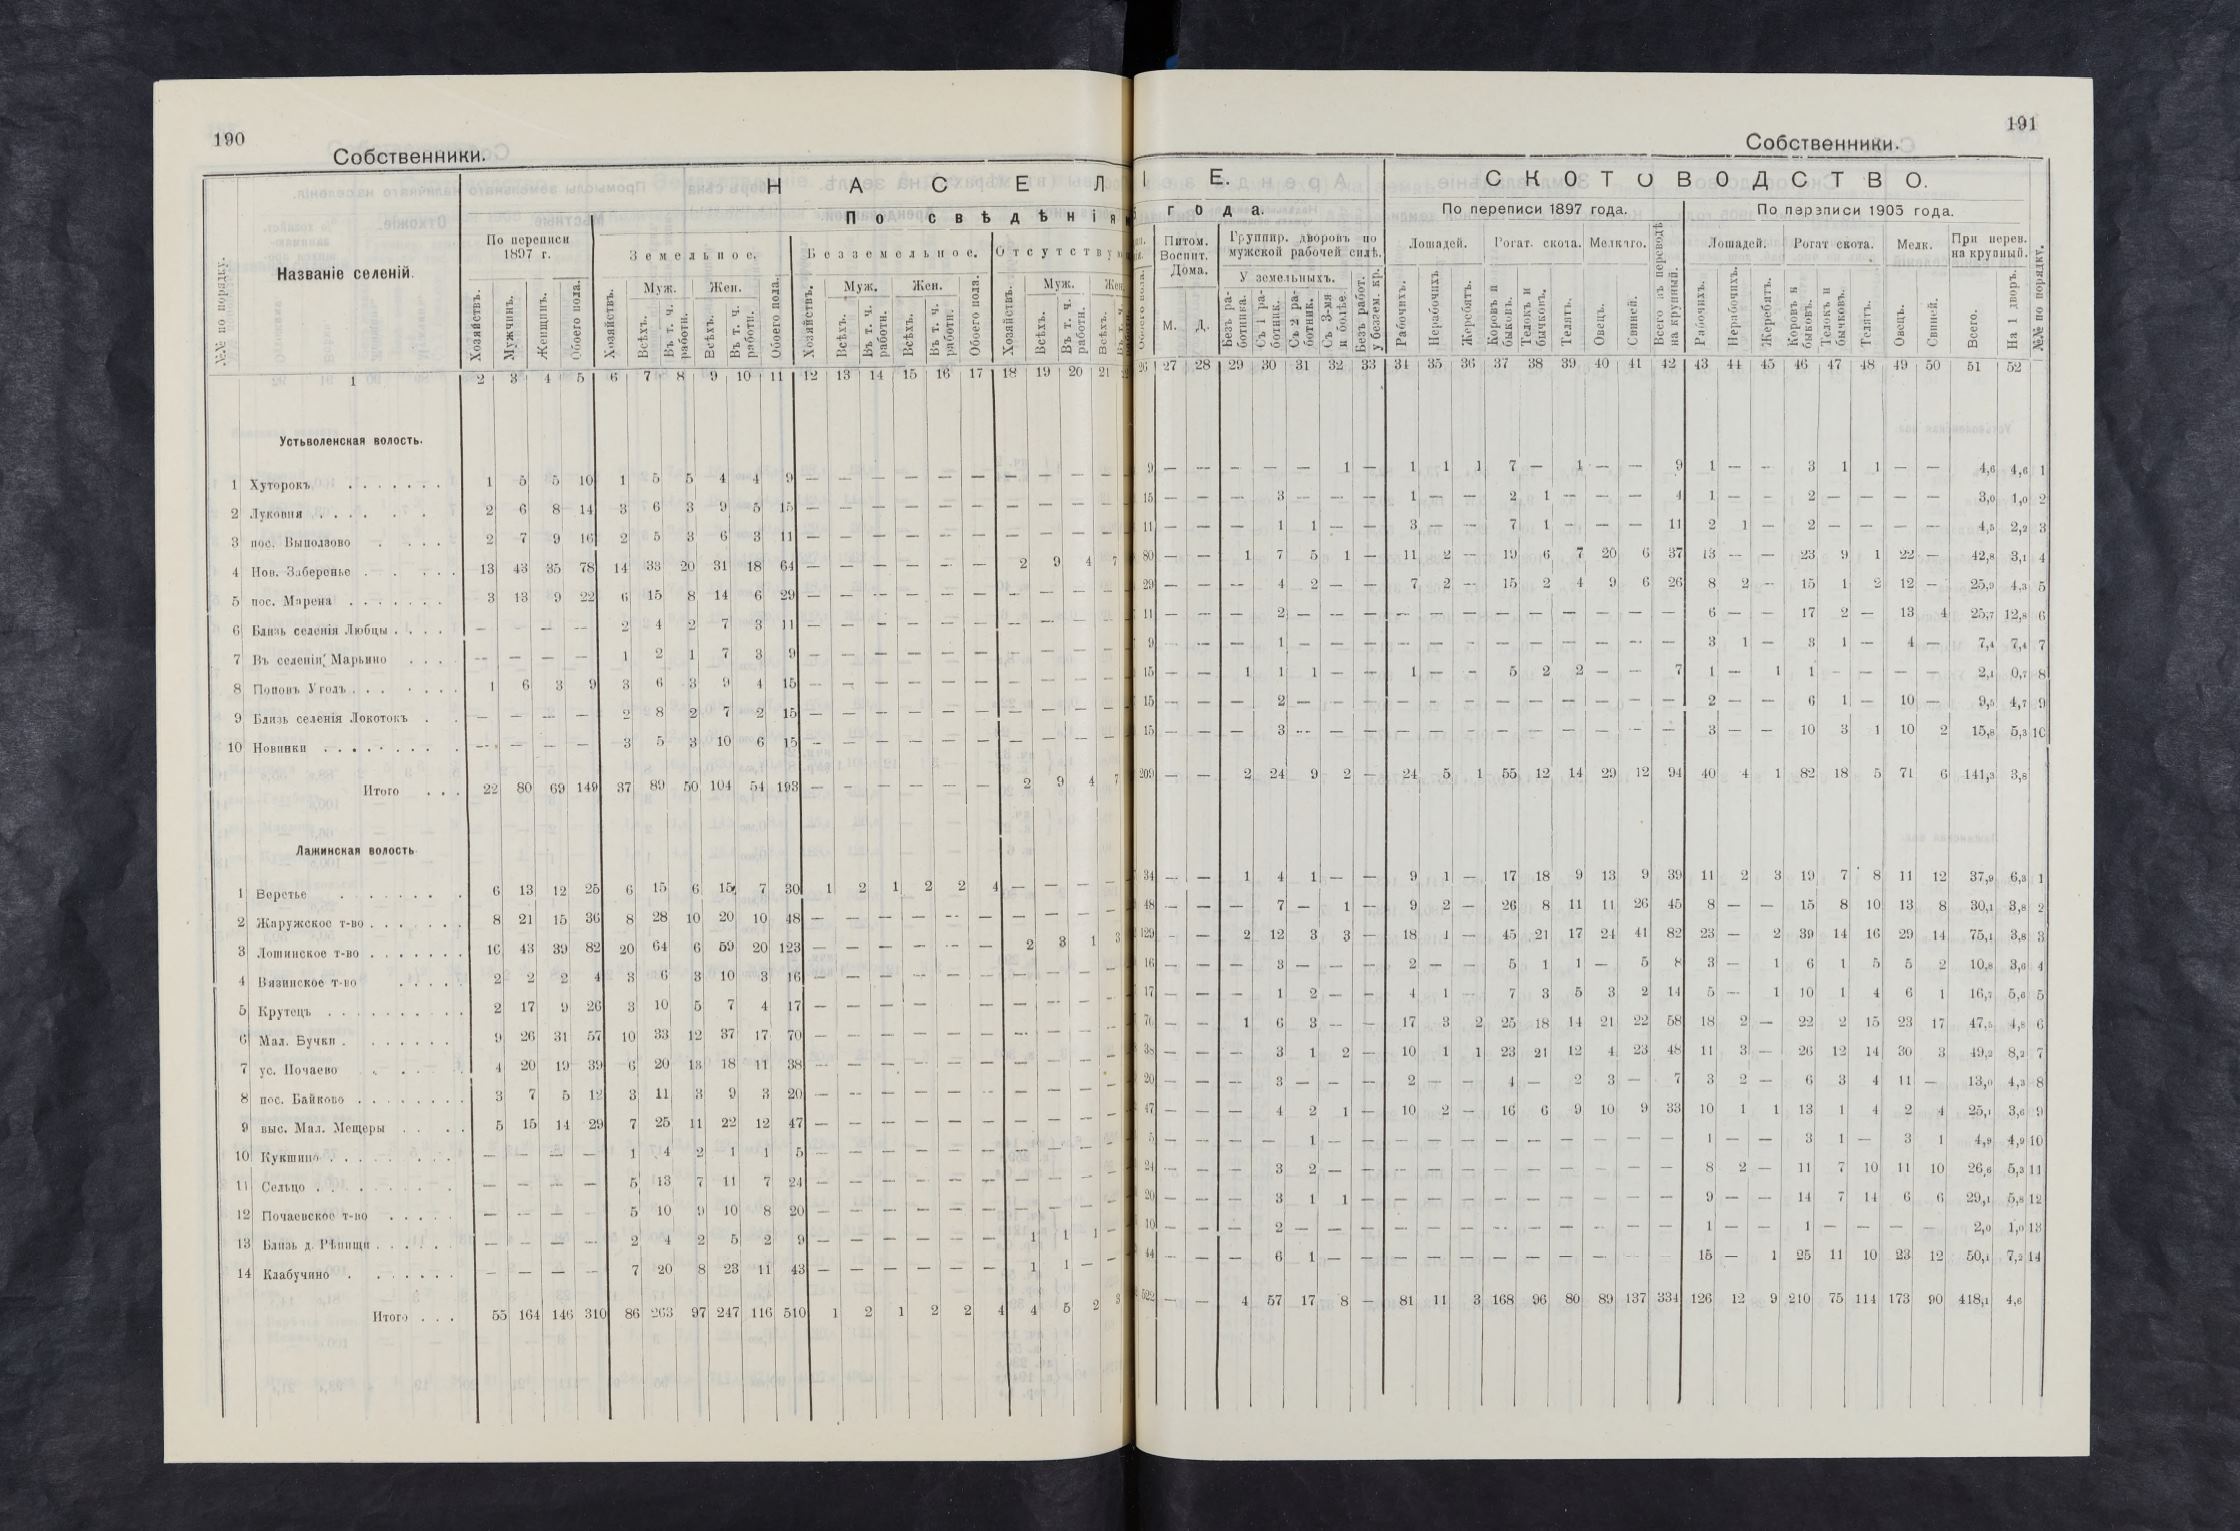 190
Собственники.
Н А С Е Л
По свѣдѣнія
№№ по порядку.
Названіе селеній.
По переписи 1897 г.
Земельное.
Безземельное.
Отсутству
Муж. Жен. Муж. Жен. Муж. Жен
Хозяйствъ. Мужчинъ. Женщинъ. Обоего пола. Хозяйствъ. Всѣхъ. Въ т. ч. работн. Всѣхъ. Въ т. ч. работн. Обоего пола. Хозяйствъ. Всѣхъ. Въ т. ч. работн. Всѣхъ. Въ т. ч. работн. Обоего пола. Хозяйствъ. Всѣхъ. Въ т. ч. работн. Всѣхъ.
1 2 3 4 5 6 7 8 9 10 11 12 13 14 15 16 17 18 19 20 21
Устьволенская волость.
1 Хуторокъ 1 5 5 10 1 5 5 4 4 9 — — — — — — — — — —
2 Луковня 2 6 8 14 3 6 3 9 5 15 — — — — — — — — — —
3 пос. Выползово 2 7 9 16 2 5 3 6 3 11 — — — — — — — — — —
4 Нов. Заберенье 13 43 35 78 14 33 20 31 18 64 — — — — — — 2 9 4 7
5 пос. Марена 3 13 9 22 6 15 8 14 6 29 — — — — — — — — — —
6 Близь селенія Любцы — — — — 2 4 2 7 3 11 — — — — — — — — — —
7 Въ селеніи Марьино — — — — 1 2 1 7 3 9 — — — — — — — — — —
8 Поповъ Уголъ 1 6 3 9 3 6 3 9 4 15 — — — — — — — — — —
9 Близь селенія Локотокъ — — — — 2 8 2 7 2 15 — — — — — — — — — —
10 Новинки — — — — 3 5 3 10 6 15 — — — — — — — — — —
Итого 22 80 69 149 37 89 50 104 54 193 — — — — — — 2 9 4 7
Лажинская волость
1 Верстье 6 13 12 25 6 15 6 15 7 30 1 2 1 2 2 4 — — — —
2 Жаружское т-во 8 21 15 36 8 28 10 20 10 48 — — — — — — — — — —
3 Лошинское т-во 16 43 39 82 20 64 6 59 20 123 — — — — — — 2 3 1 3
4 Вязинское т-во 2 2 2 4 3 6 3 10 3 16 — — — — — — — — — —
5 Крутецъ 2 17 9 26 3 10 5 7 4 17 — — — — — — — — — —
6 Мал. Бучки 9 26 31 57 10 33 12 37 17 70 — — — — — — — — — —
7 ус. Почаево 4 20 19 39 6 20 13 18 11 38 — — — — — — — — — —
8 пос. Байково 3 7 5 12 3 11 3 9 3 20 — — — — — — — — — —
9 выс. Мал. Мещеры 5 15 14 29 7 25 11 22 12 47 — — — — — — — — — —
10 Кукшино — — — — 1 4 2 1 1 5 — — — — — — — — — —
11 Сельцо — — — — 5 13 7 11 7 24 — — — — — — — — — —
12 Почаевское т-во — — — — 5 10 9 10 8 20 — — — — — — — — — —
13 Близь д. Рѣпищи — — — — 2 4 2 5 2 9 — — — — — — 1 1 1 —
14 Клабучино — — — — 7 20 8 23 11 43 — — — — — — 1 1 — —
Итого 55 164 146 310 86 263 97 247 116 510 1 2 1 2 2 4 4 5 2 3
191
Собственники.
І Е. СКОТОВОДСТВО.
года. По переписи 1897 года. По переписи 1905 года.
Питом. Воспит. Дома.
Группир. дворовъ по мужской рабочей силѣ.
У земельныхъ.
Лошадей. Рогат. скота. Мелкаго. Лошадей. Рогат скота. Мелк. При перев. на крупный.
Обоего пола. М. Д. Безъ работника. Съ 1 работник. Съ 2 работник. Съ 3-мя и болѣе. Безъ работ. у беззем. кр. Рабочихъ. Нерабочихъ Жеребятъ. Коровъ и быковъ. Телокъ и бычковъ. Телятъ. Овецъ. Свиней. Всего въ переводѣ на крупный. Рабочихъ. Нерабочихъ. Жеребятъ. Коровъ и быковъ. Телокъ и бычковъ. Телятъ. Овецъ. Свиней. Всего. На 1 дворъ. №№ по порядку.
26 27 28 29 30 31 32 33 34 35 36 37 38 39 40 41 42 43 44 45 46 47 48 49 50 51 52
9 — — — — — 1 — 1 1 1 7 — 1 — — 9 1 — — 3 1 1 — — 4,6 4,6 1
15 — — — 3 — — — 1 — — 2 1 — — — 4 1 — — 2 — — — — 3,0 1,0 2
11 — — — 1 1 — — 3 — — 7 1 — — — 11 2 1 — 2 — — — — 4,5 2,2 3
80 — — 1 7 5 1 — 11 2 — 19 6 7 20 6 37 13 — — 23 9 1 22 — 42,8 3,1 4
29 — — — 4 2 — — 7 2 — 15 2 4 9 6 26 8 2 — 15 1 2 12 — 25,9 4,3 5
11 — — — 2 — — — — — — — — — — — — 6 — — 17 2 — 13 4 25,7 12,8 6
9 — — — 1 — — — — — — — — — — — — 3 1 — 3 1 — 4 — 7,4 7,4 7
15 — — 1 1 1 — — 1 — — 5 2 2 — — 7 1 — 1 1 — — — — 2,1 0,7 8
15 — — — 2 — — — — — — — — — — — — 2 — — 6 1 — 10 — 9,5 4,7 9
15 — — — 3 — — — — — — — — — — — — 3 — — 10 3 1 10 2 15,8 5,3 10
209 — — 2 24 9 2 — 24 5 1 55 12 14 29 12 94 40 4 1 82 18 5 71 6 141,3 3,8
34 — — 1 4 1 — — 9 1 — 17 18 9 13 9 39 11 2 3 19 7 8 11 12 37,9 6,3 1
48 — — — 7 — 1 — 9 2 — 26 8 11 11 26 45 8 — — 15 8 10 13 8 30,1 3,8 2
129 — — 2 12 3 3 — 18 1 — 45 21 17 24 41 82 23 — 2 39 14 16 29 14 75,1 3,8 3
16 — — — 3 — — — 2 — — 5 1 1 — 5 8 3 — 1 6 1 5 5 2 10,8 3,6 4
17 — — — 1 2 — — 4 1 — 7 3 5 3 2 14 5 — 1 10 1 4 6 1 16,7 5,6 5
70 — — 1 6 3 — — 17 3 2 25 18 14 21 22 58 18 2 — 22 2 15 23 17 47,5 4,8 6
38 — — — 3 1 2 — 10 1 1 23 21 12 4 23 48 11 3 — 26 12 14 30 3 49,2 8,2 7
20 — — — 3 — — — 2 — — 4 — 2 3 — 7 3 2 — 6 3 4 11 — 13,0 4,3 8
47 — — — 4 2 1 — 10 2 — 16 6 9 10 9 33 10 1 1 13 1 4 2 4 25,1 3,6 9
5 — — — — 1 — — — — — — — — — — — 1 — — 3 1 — 3 1 4,9 4,9 10
24 — — — 3 2 — — — — — — — — — — — 8 2 — 11 7 10 11 10 26,6 5,3 11
20 — — — 3 1 1 — — — — — — — — — — 9 — — 14 7 14 6 6 29,1 5,8 12
10 — — — 2 — — — — — — — — — — — — 1 — — 1 — — — — 2,0 1,0 13
44 — — — 6 1 — — — — — — — — — — — 15 — 1 25 11 10 23 12 50,1 7,2 14
522 — — 4 57 17 8 — 81 11 3 168 96 80 89 137 334 126 12 9 210 75 114 173 90 418,1 4,6